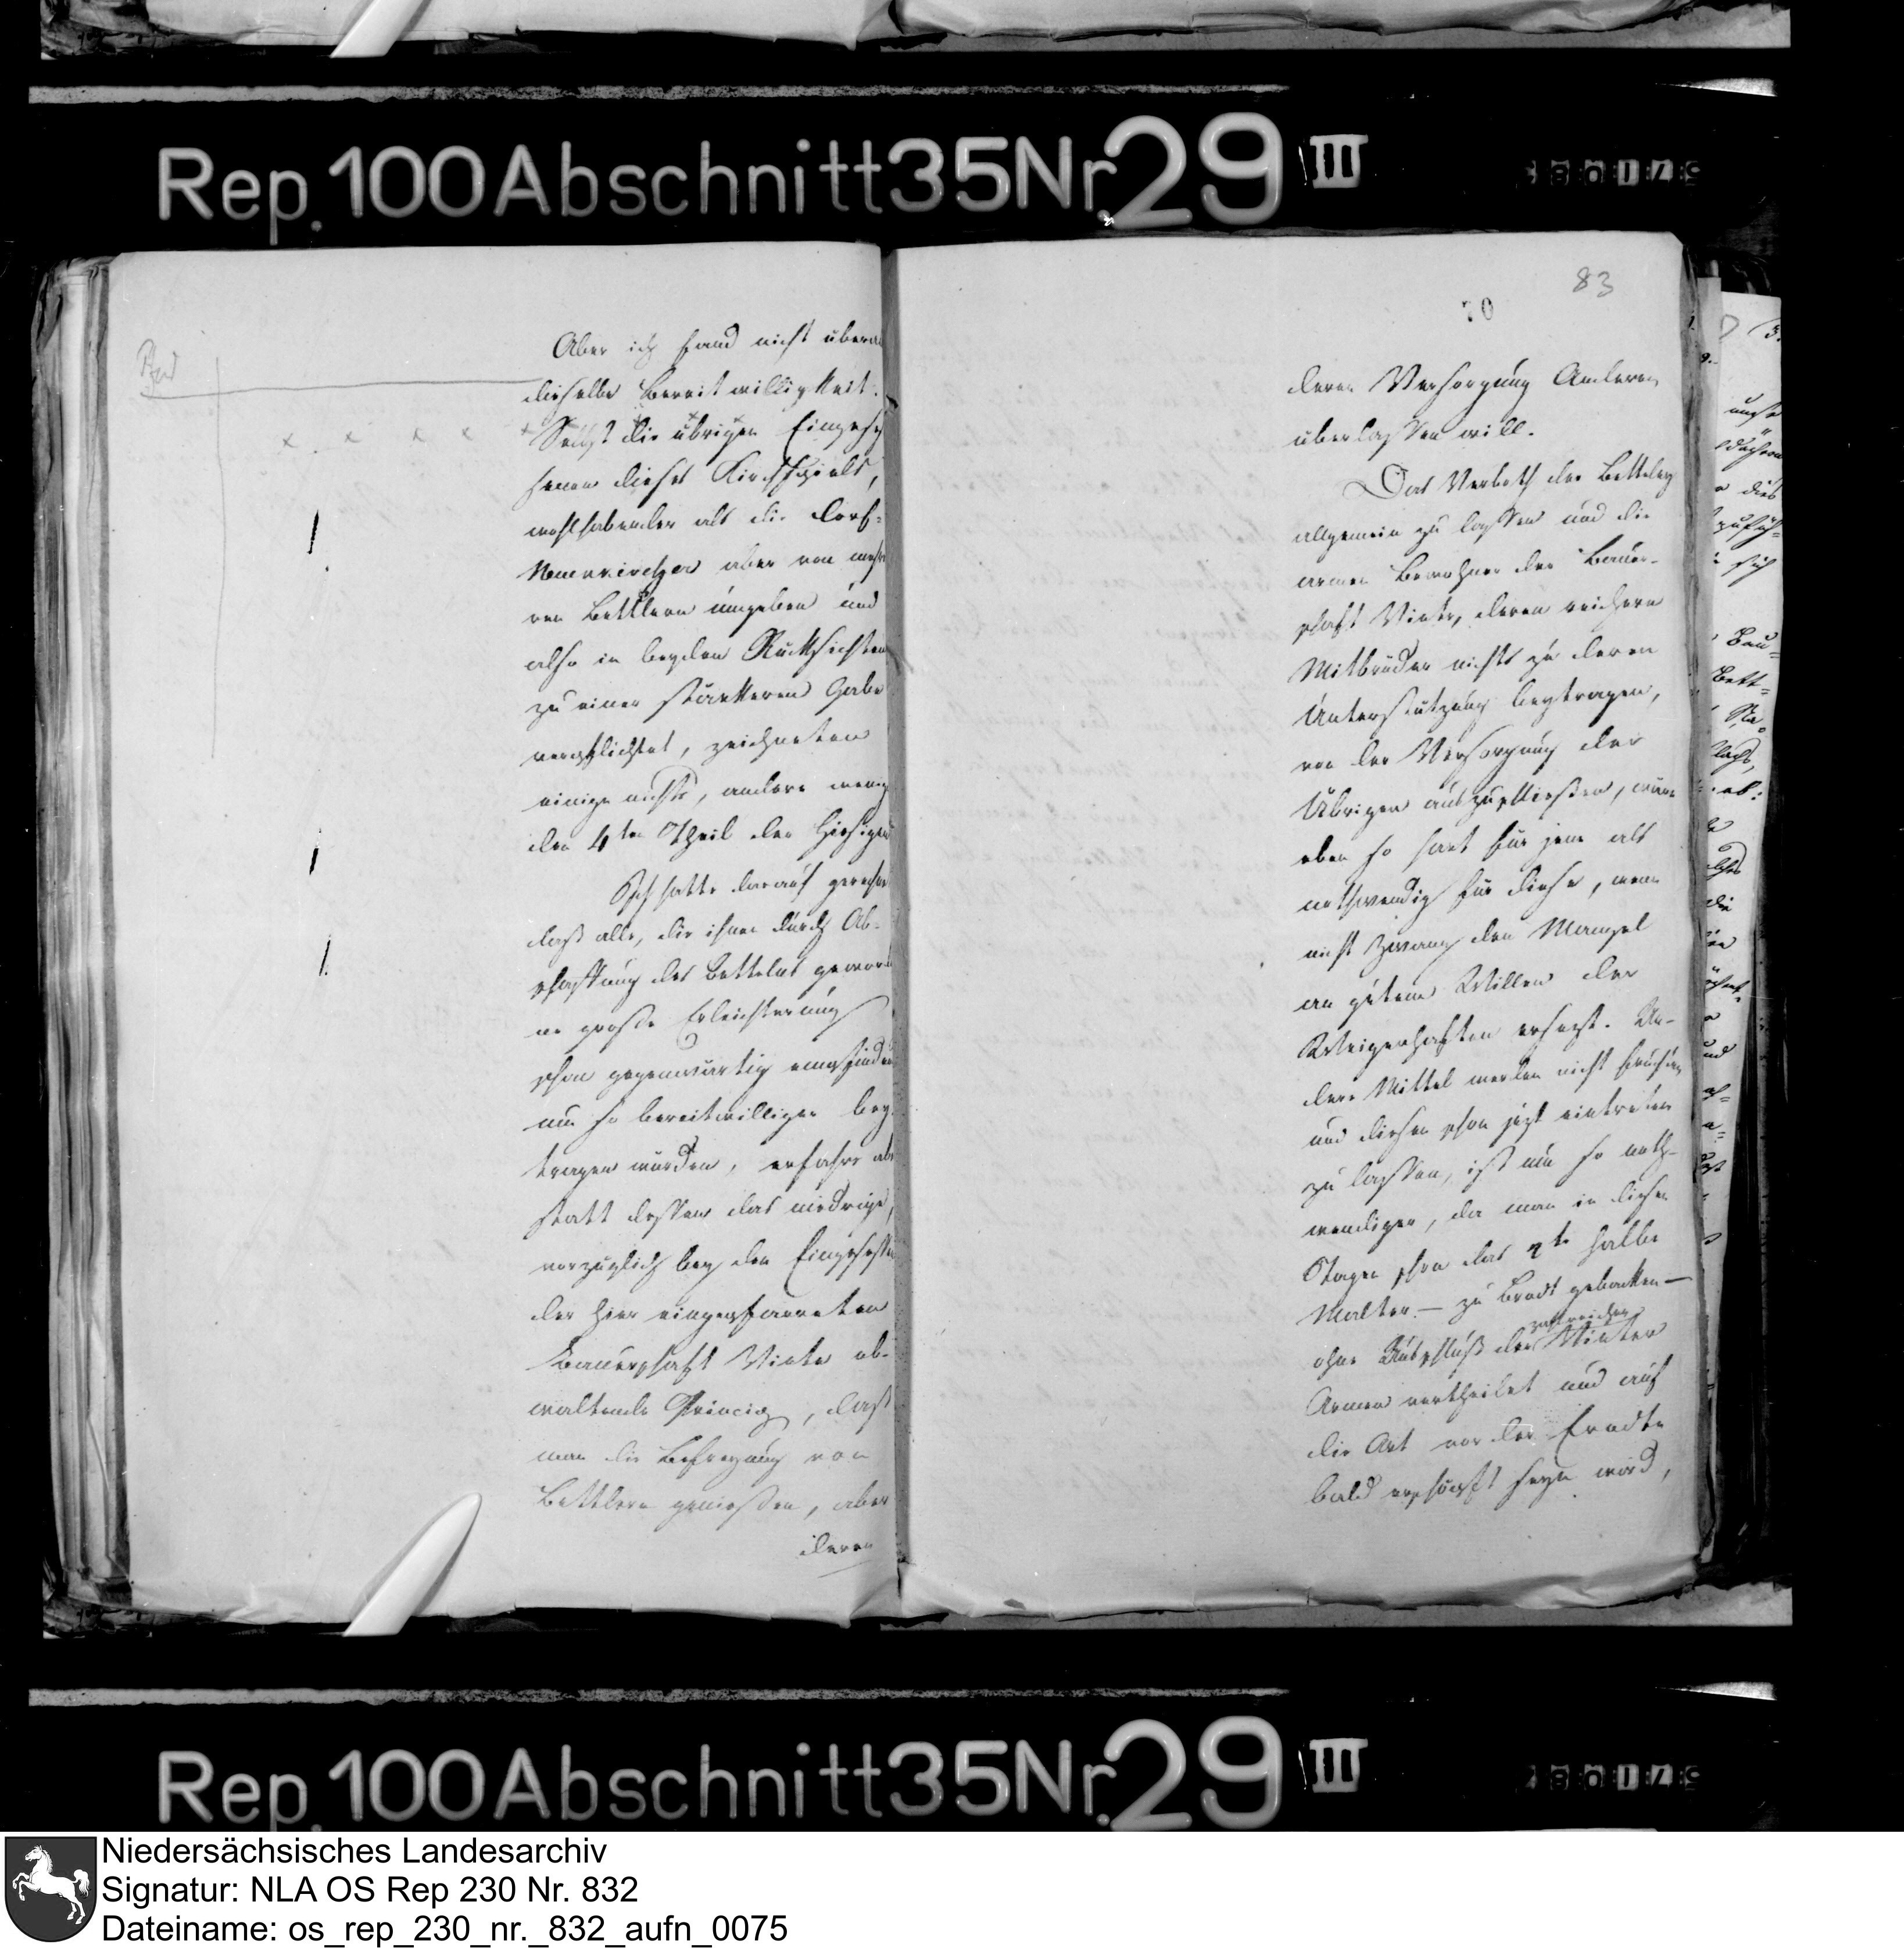 Rep. 100 Abschnitt 35 Nr. 29 III
Aber ich fand nicht übera
dieselbe Bereitwilligkeit.
Selbst die übrigen Eingeses
senen dieses Kirchspiels,
wohlhabender als die Dorf-
Neuenkircher aber von mehre
ren Bettlern umgeben und
also in beyden Rücksichten
zu einer stärkeren Gabe
verpflichtet, zeichneten
einige nichts, andere wenig
den 4ten Theil der hiesigen
Ich hatte darauf gerechne
daß alle, die ihnen durch Ab-
schaffung des Bettelns geword
ne große Erleichterung
schon gegenwärtig empfinden
um so bereitwilliger bey-
tragen würden, erfahre abe
statt dessen das niedrige,
vorzüglich bey den Eingesesse
der hier eingepfarreten
Bauerschaft Vinte ob-
waltende Princip, daß
man die Befreyung von
Bettlern genießen, aber
deren
83
70
deren Versorgung Anderen
überlassen will.
Das Verboth der Betteley
allgemein zu lassen und die
armen Bewohner der Bauer-
schaft Vinte, deren reichern
Mitbrüder nichts zu deren
Unterstützung beytragen,
von der Versorgung der
Übrigen auszuschließen, wäre
eben so hart für jene als
nothwendig für diese, wenn
nicht Zwang den Mangel
an gutem Willen der
Weigerhaften ersezt. An-
dere Mittel werden nicht fruchten
und diesen schon jezt eintreten
zu lassen, ist um so noth-
wendiger, da man in diesen
Tagen schon das 2te halbe
Malter - zu Brodt gebacken -
ohne Ausschluß der zahlreichen Vinter
Armen vertheilet und auf
die Art vor der Erndte
bald erschöpft seyn wird,
Rep. 100 Abschnitt 35 Nr. 29 III
Niedersächsisches Landesarchiv
Signatur: NLA OS Rep 230 Nr. 832
Dateiname: os_rep_230_nr._832_aufn_0075